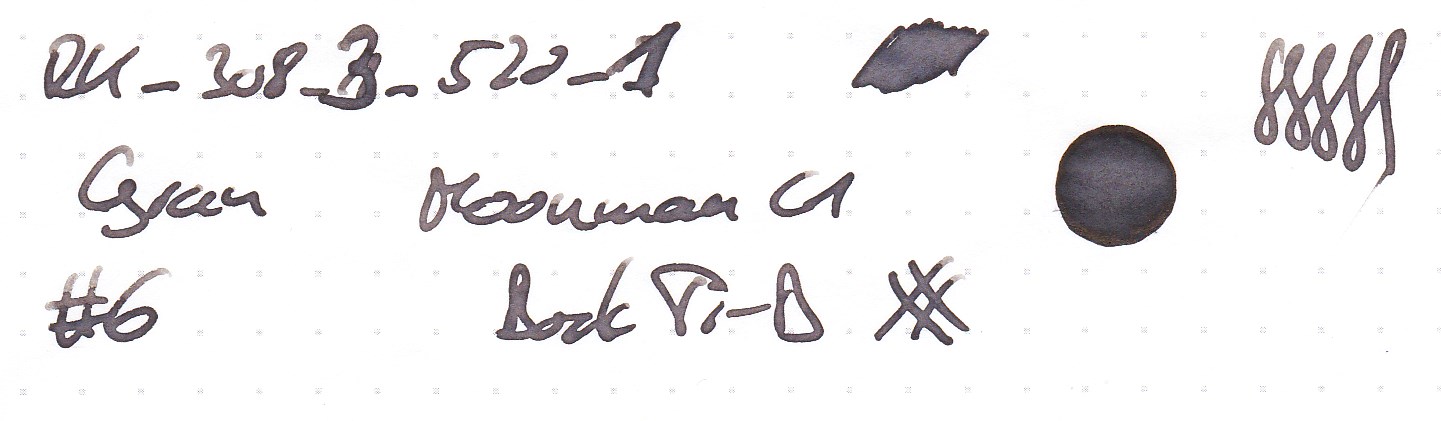 RK-308-3-520-1
Moonman C1
#6 Bock Ti-B